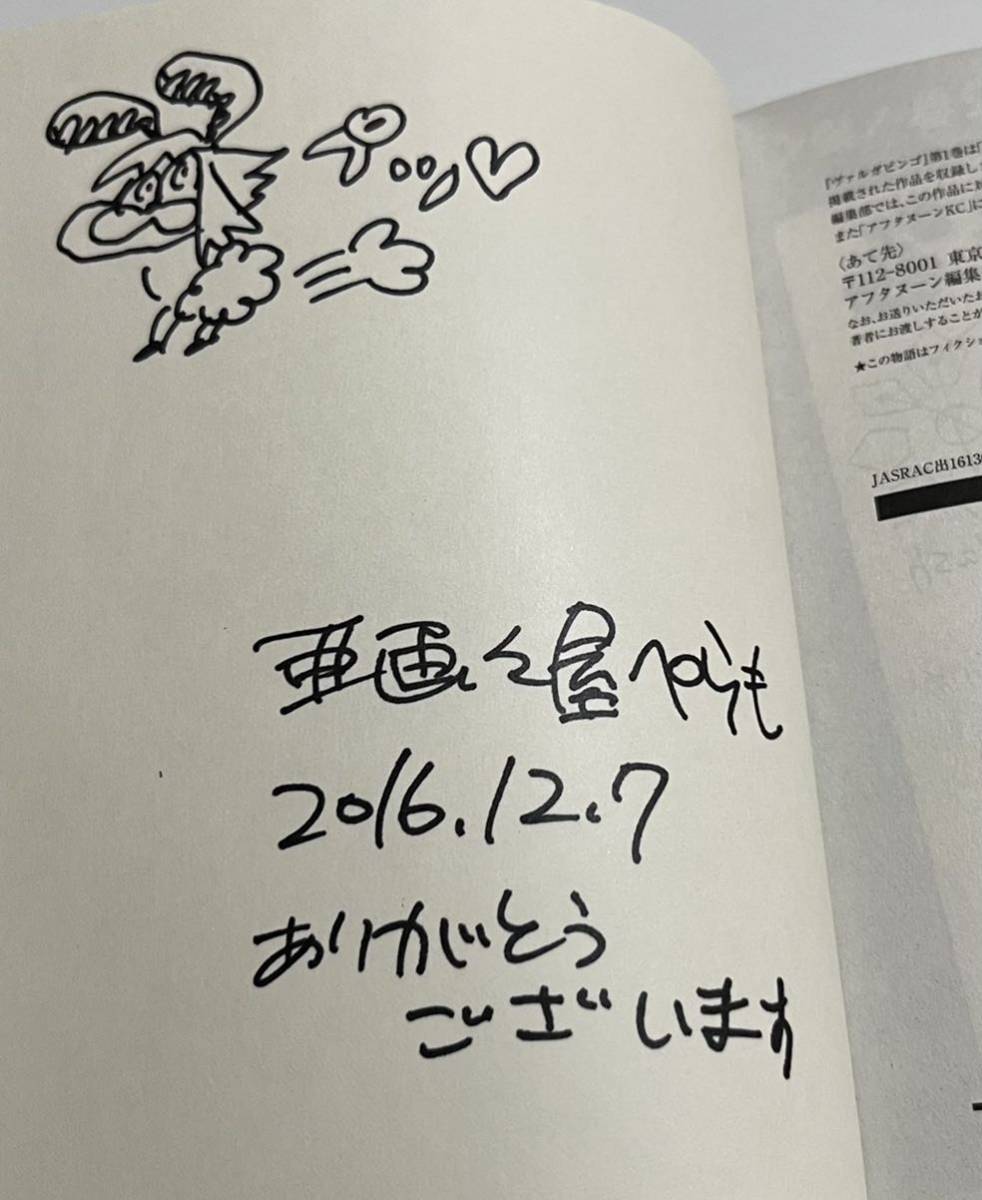 亜画々屋ぺらも
2016.12.7
ありがとう
ございます
『ヴァルガビンゴ』第1巻は「
掲載された作品を収録し
編集部では、この作品に対
また「アフタヌーンKC」に
〈あて先〉
〒112-8001 東京
アフタヌーン編集
なお、お送りいただいたお
著者にお渡しすることが
★この物語はフィクショ
JASRAC出1613